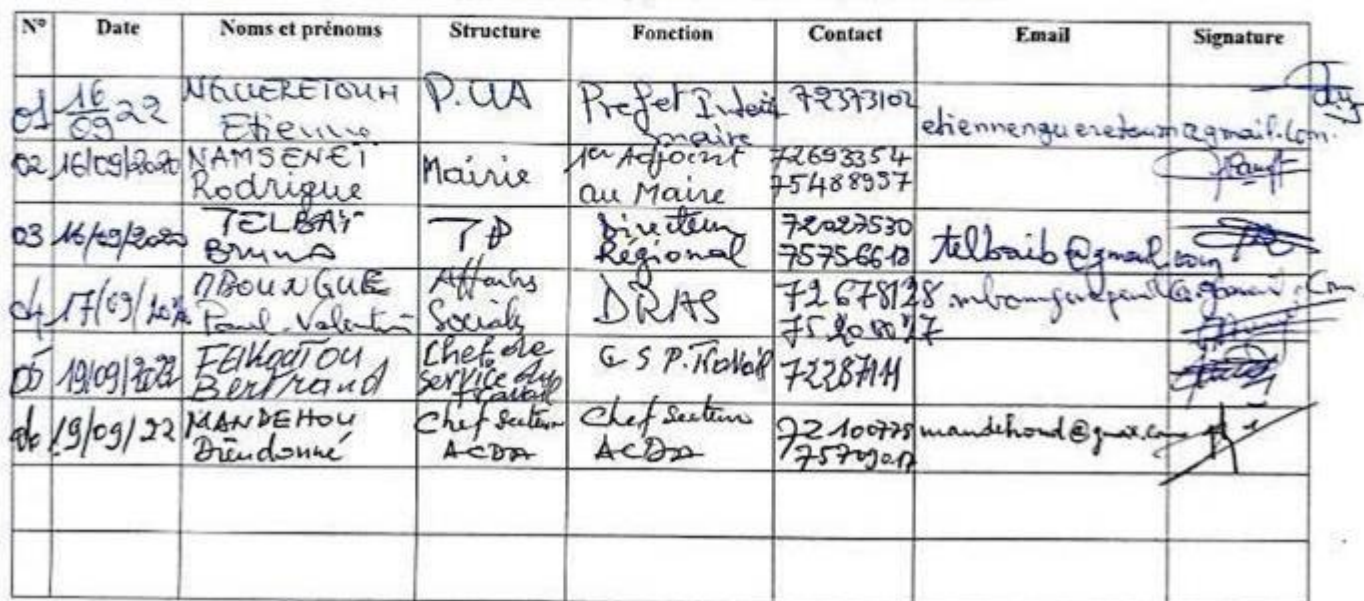 N° Date Noms et prénoms Structure Fonction Contact Email Signature
01 16/09 22 NGUERETOUM Etienne P.UA Prefet Intéri maire 72373102 etiennengueretoum@gmail.com
02 16/09/2020 NAMSENEÏ Rodrigue Mairie 1er Adjoint au Maire 72693354 75488957
03 16/09/2020 TELBAY Bruno TP Directeur Régional 72027530 telbaib@gmail.com
04 17/09/ MBOUNGUE Paul-Valentin Affaires Sociales DRAS 72678128
05 19/09/2022 Bertrand Chef de service du travail 72287111
19/09/22 MANDEHOU Dieudonné Chef secteur Chef secteur 72100775